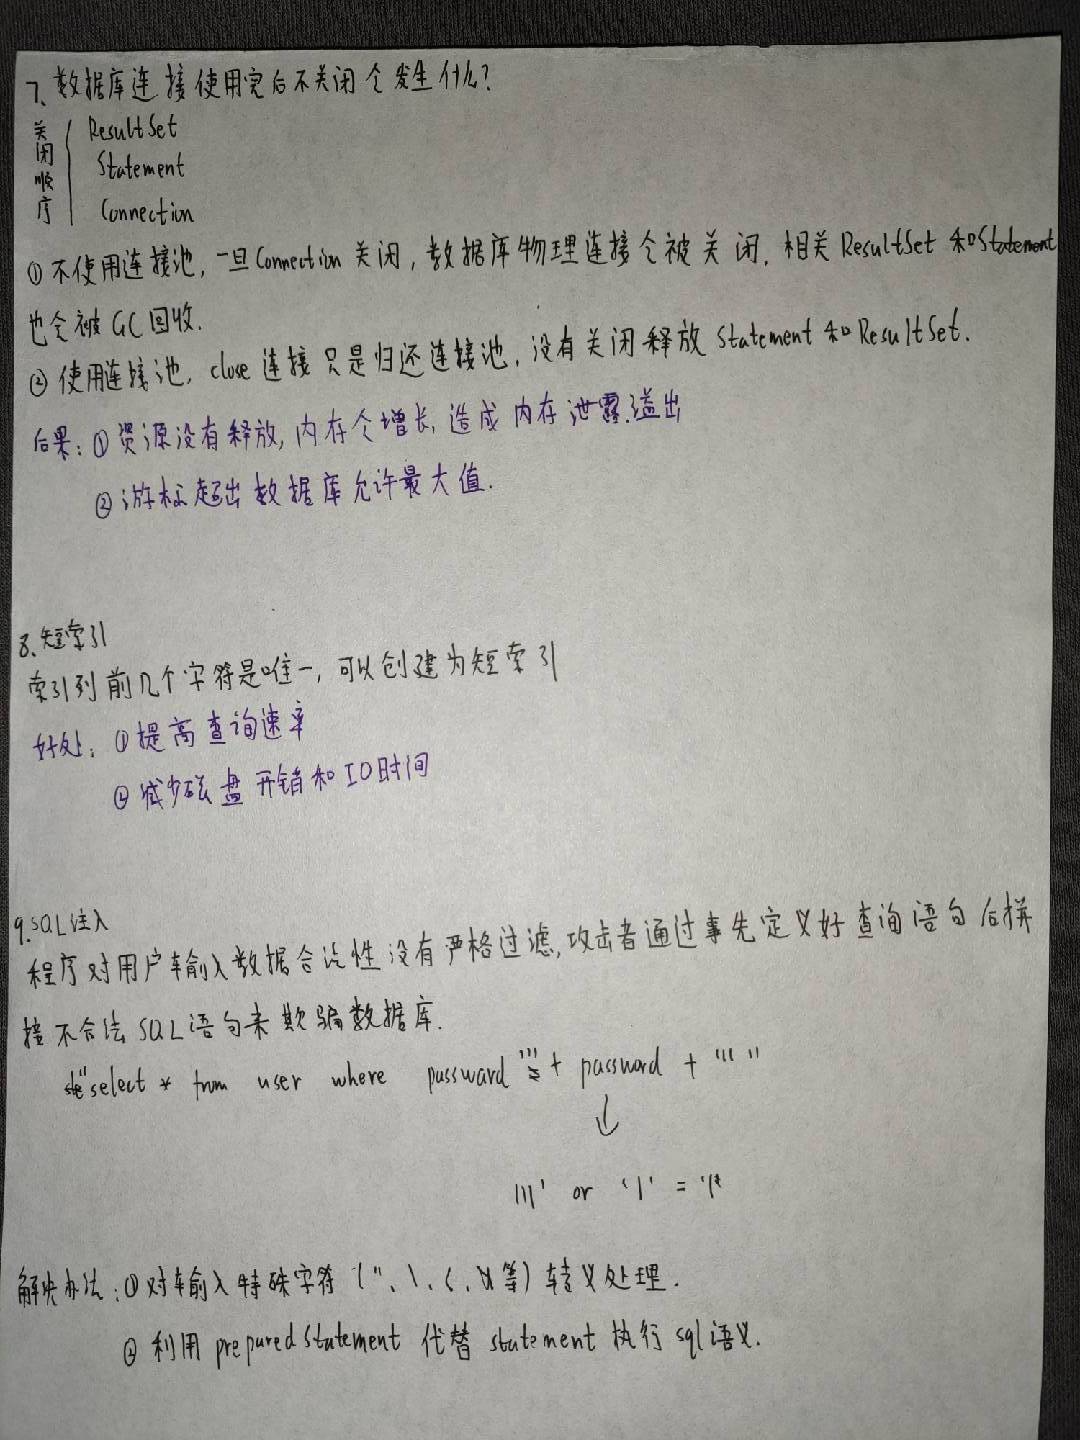 7、数据库连接使用完后不关闭会发生什么?
关闭顺序
ResultSet
Statement
Connection
①不使用连接池,一旦Connection关闭,数据库物理连接会被关闭.相关ResultSet和Statement
也会被GC回收.
②使用连接池,close连接只是归还连接池,没有关闭释放statement和ResultSet.
后果:①资源没有释放,内存会增长,造成内存泄露.溢出
②游标超出数据库允许最大值.
8、短索引
索引列前几个字符是唯一,可以创建为短索引
好处:①提高查询速率
②减少磁盘开销和IO时间
9.SQL注入
程序对用户输入数据合法性没有严格过滤,攻击者通过事先定义好查询语句后拼
接不合法SQL语句来欺骗数据库.
"select * from user where password + password + "'"
↓
111' or '1' = '1
解决办法:①对输入特殊字符(",\,<,&等)转义处理.
②利用preparedStatement代替statement执行sql语义.